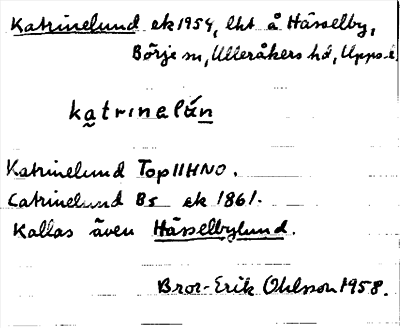 Katrinelund ek 1954, lht å Hässelby,
Börje sn, Ulleråkers hd, Upps. l.
katrinelún
Katrinelund Top II HNO.
Catrinelund Bs ek 1861.
Kallas även Hässelbylund.
Bror-Erik Ohlsson 1958.